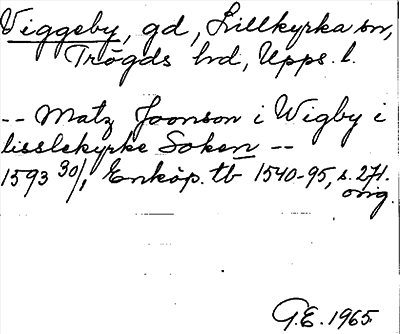 Viggeby, gd, Lillkyrka sn,
Trögds hd, Upps. l.
-- Matz Joonson i Wigby i
lisslekyrke Soken --
1593 30/1, Enköp. tb 1540-95, s. 271.
orig.
G.E. 1965